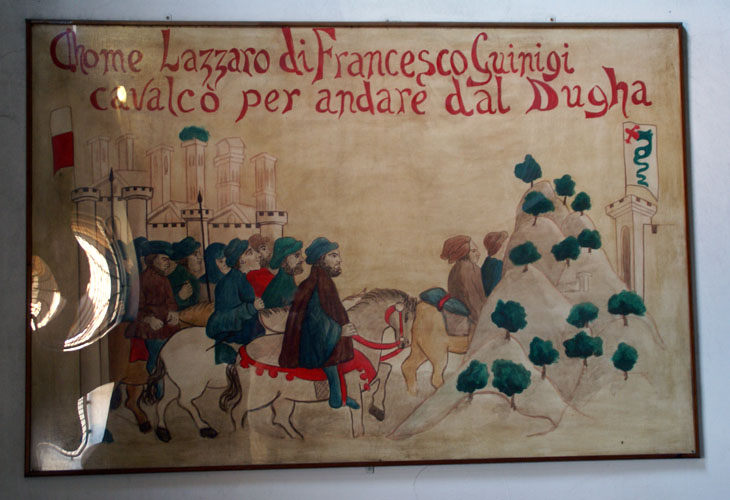 Chome Lazzaro di Francesco Guinigi
cavalcò per andare dal Dugha